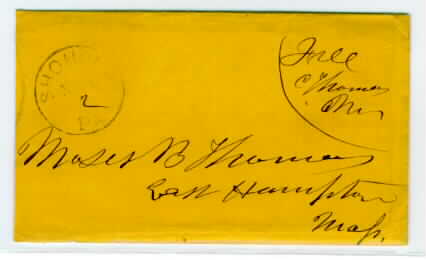 SHOHO
2
PA
Free
C Thomas
Moses B Thomas
East Hampton
Mass.